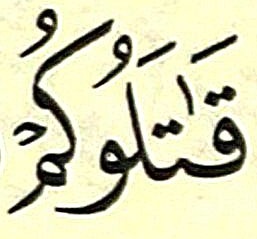 قَٰتَلُوكُمْ